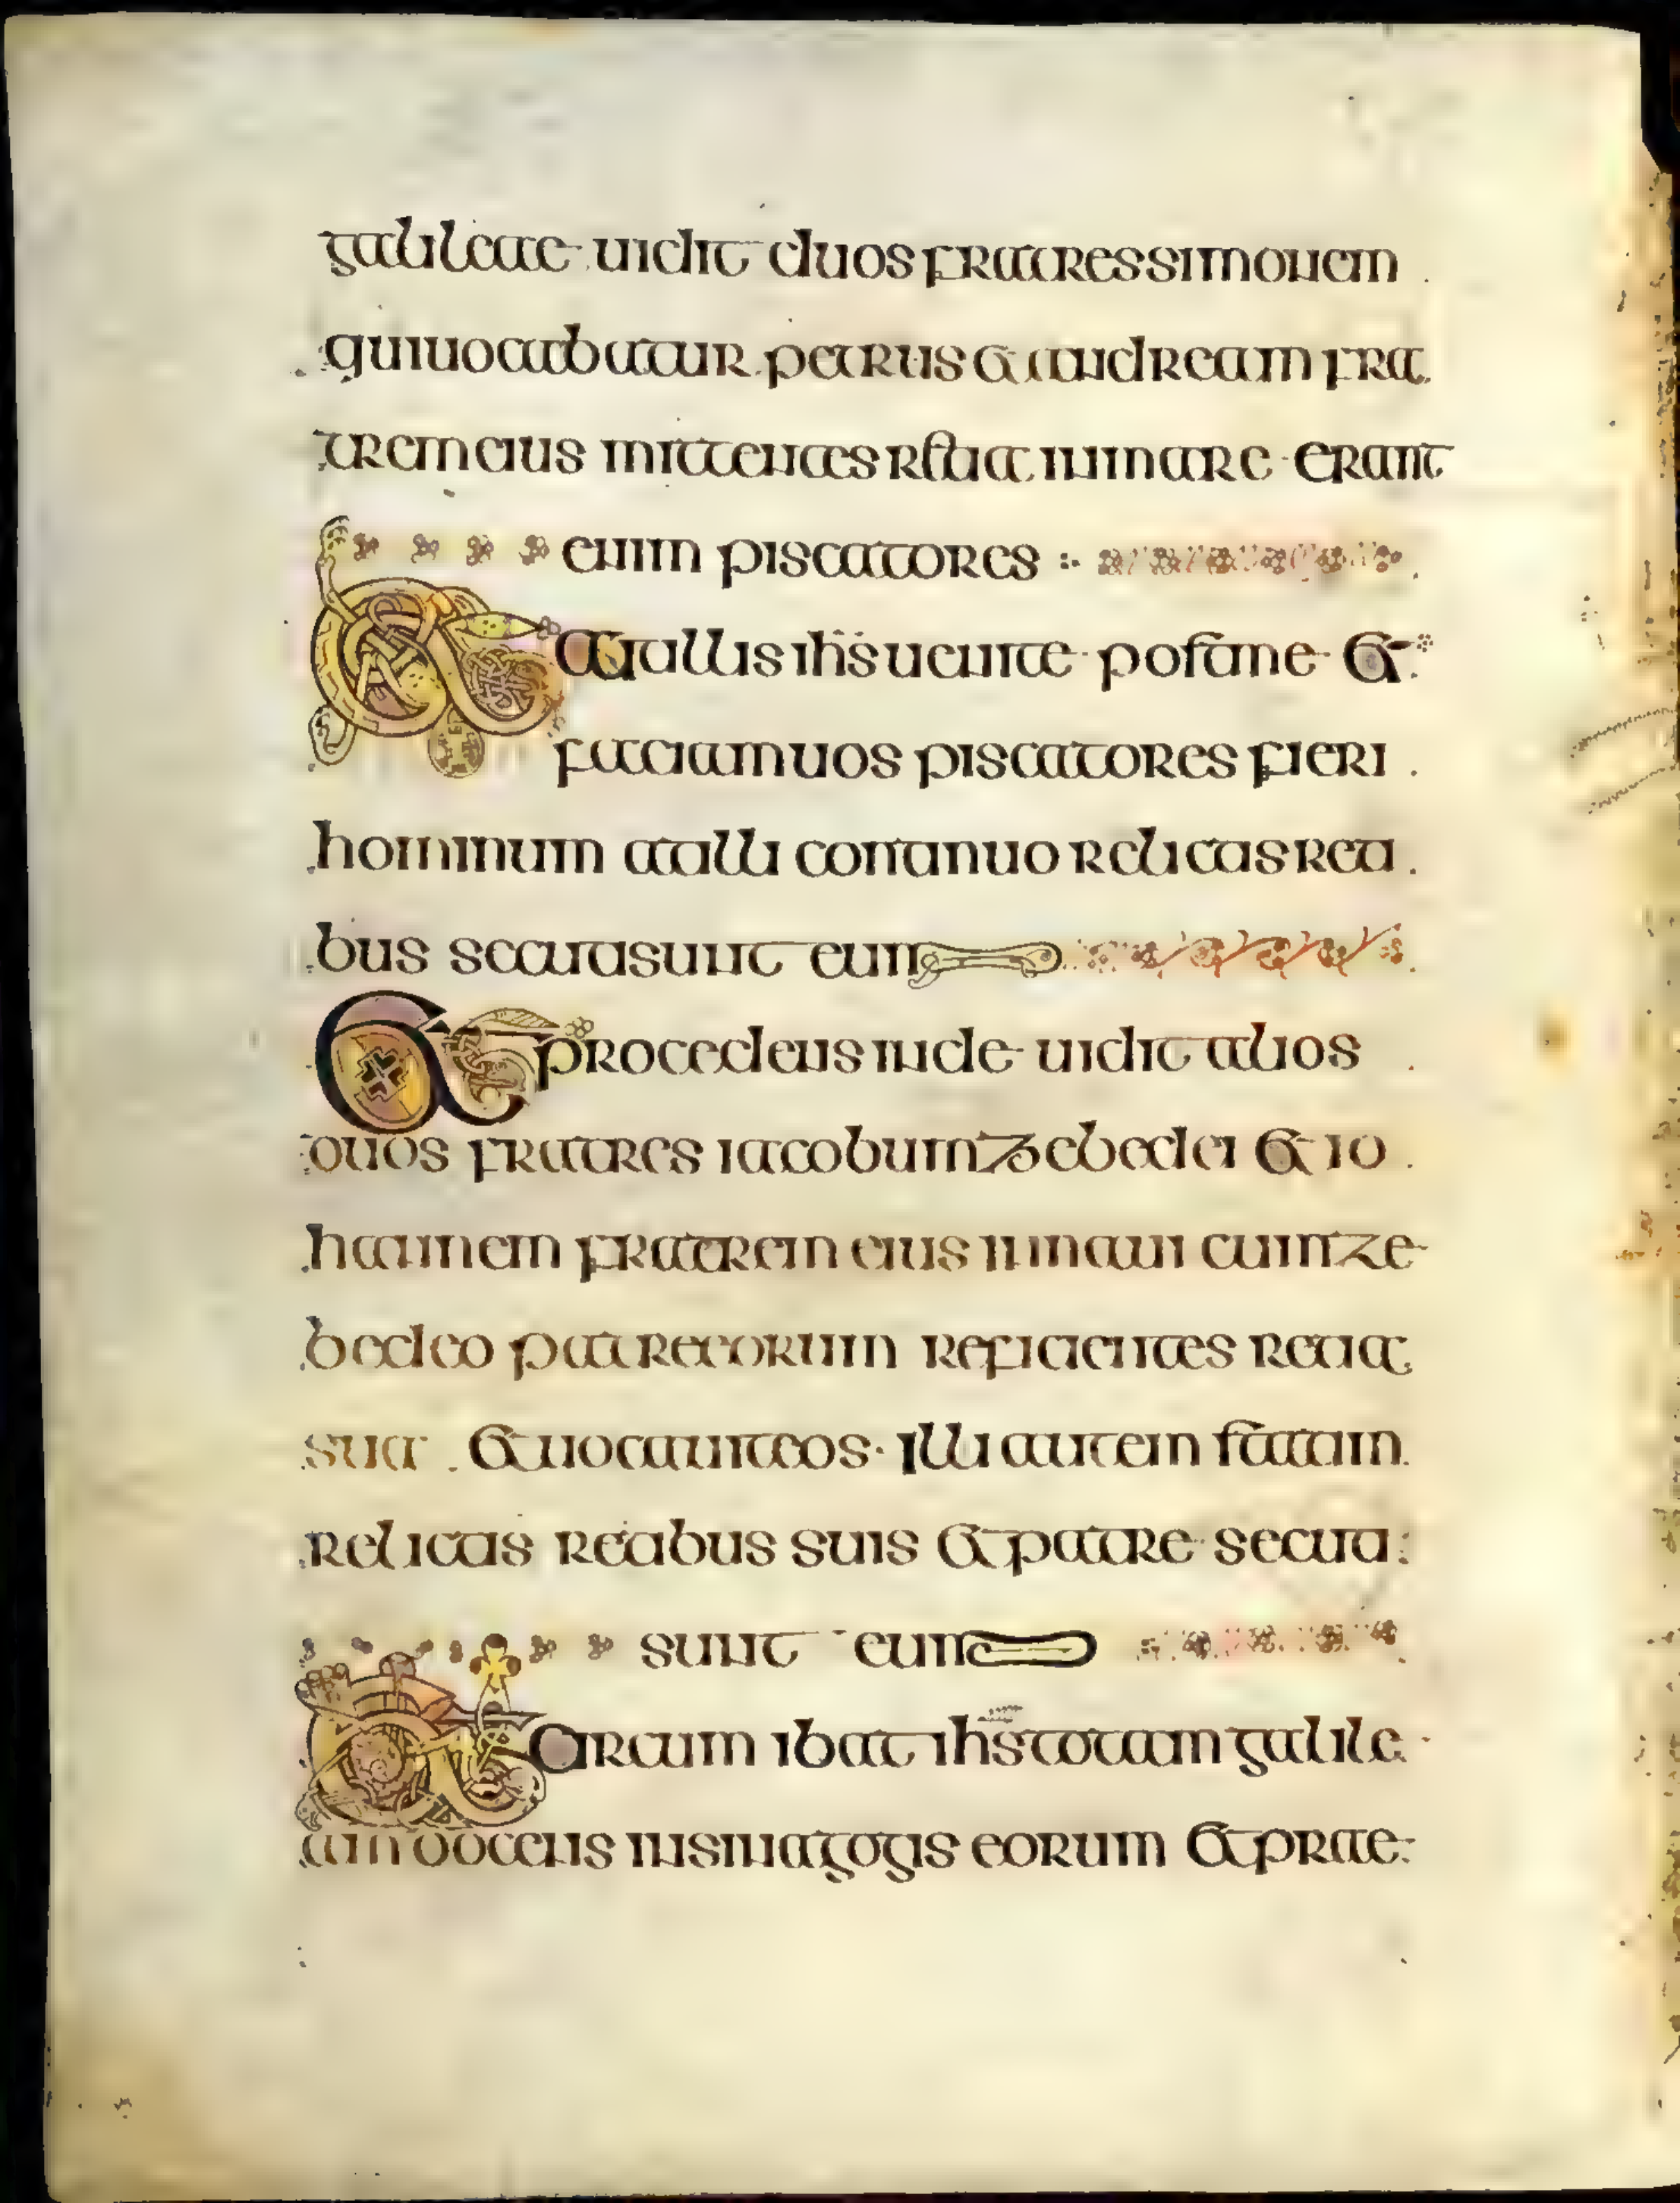 galileae uidit duos fratres simonem
qui uocabatur petrus et andream fra
trem eius mittentes retia in mare erant
enim piscatores
Et ait illis ihs uenite post me et
faciam uos piscatores fieri
hominum at illi continuo relictis reti
bus secuti sunt eum
Et procedens inde uidit alios
duos fratres iacobum zebedei et io
hannem fratrem eius in naui cum ze
bedeo patre eorum reficientes retia
sua et uocauit eos illi autem statim
relictis retibus suis et patre secuti
sunt eum
Et circum ibat ihs totam galile
am docens in sinagogis eorum et prae